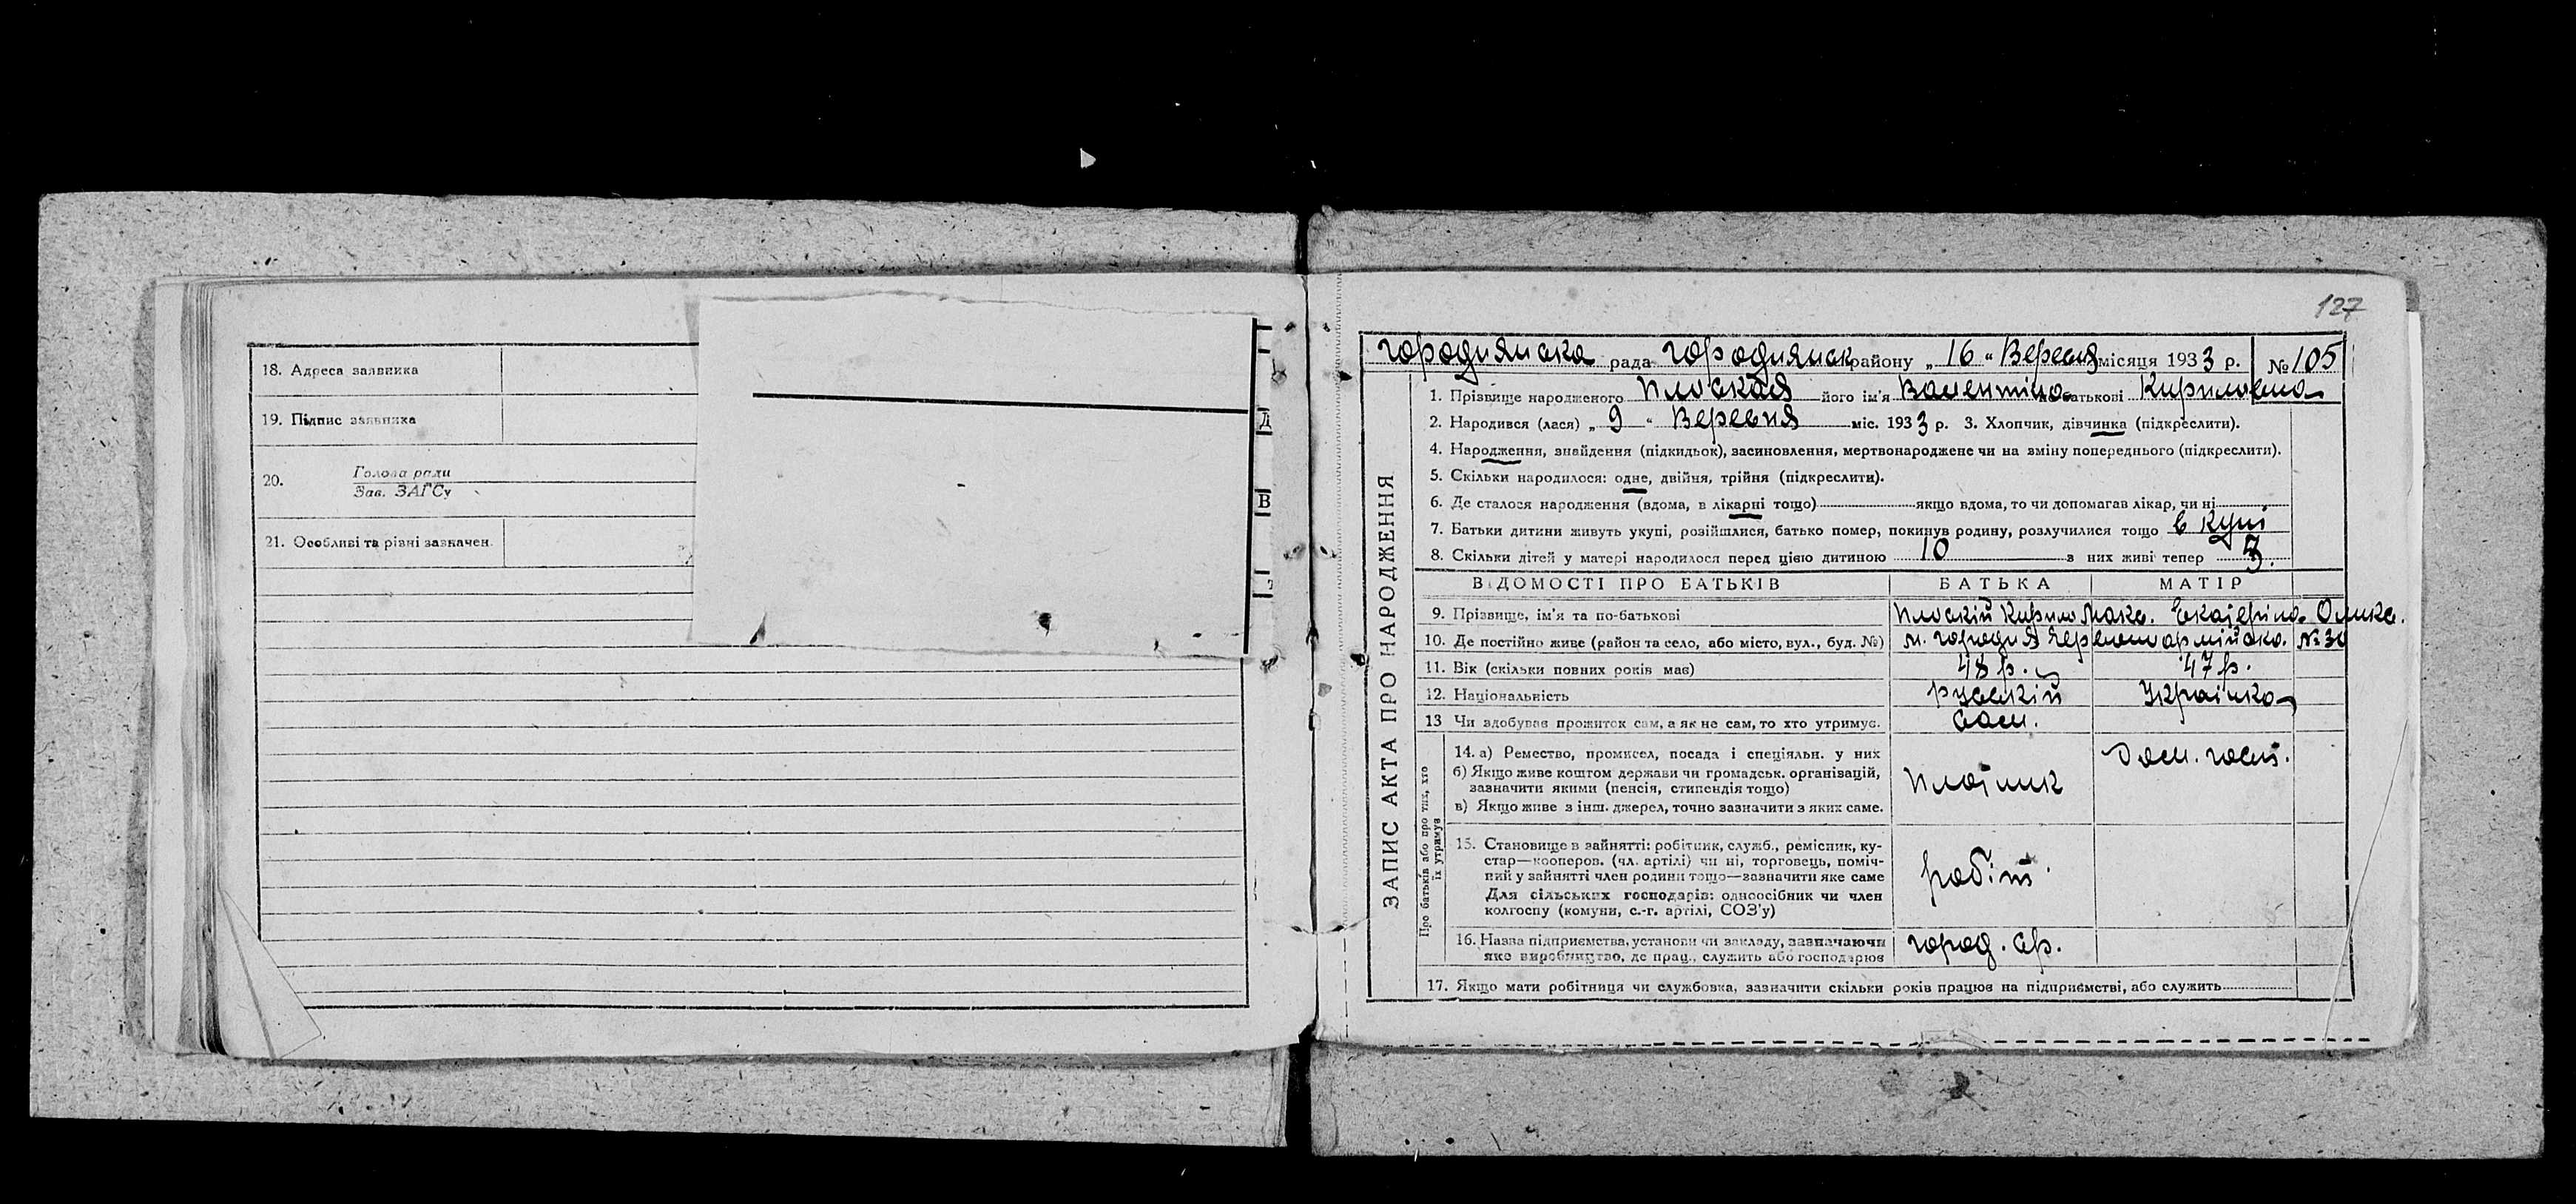 18. Адреса заявника
19. Підпис заявника
20. Голова ради
Зав. ЗАГСу
21. Особливі та різні зазначен.
Д
В
127
Городнянска рада Городнянск району „ 16 “ Вересня місяця 1933 р. № 105
1. Прізвище народженого Плоская його ім'я Валентіна по батькові Кирилмовна
2. Народився (лася) „ 9 “ Вересня міс. 1933 р. 3. Хлопчик, дівчинка (підкреслити).
4. Народження, знайдення (підкидьок), засиновлення, мертвонароджене чи на зміну попереднього (підкреслити).
5. Скільки народилося: одне, двійня, трійня (підкреслити).
6. Де сталося народження (вдома, в лікарні тощо) якщо вдома, то чи допомагав лікар, чи ні
7. Батьки дитини живуть укупі, розійшлися, батько помер, покинув родину, розлучилися тощо в купі
8. Скільки дітей у матері народилося перед цією дитиною 10 з них живі тепер
ВІДОМОСТІ ПРО БАТЬКІВ БАТЬКА МАТІР
9. Прізвище, ім'я та по-батькові Плоскій Кирило Макс. Екатеріна Оликс.
10. Де постійно живе (район та село, або місто, вул., буд. №) м. Городня Червоноармійска. № 30
11. Вік (скільки повних років має) 48 р. 47 р.
12. Національність Рускій Українка
13 Чи здобував прожиток сам, а як не сам, то хто утримує. Сам.
14. а) Ремество, промисел, посада і спеціяльн. у них Дом. госп.
б) Якщо живе коштом держави чи громадськ. організацій,
зазначити якими (пенсія, стипендія тощо) Плотник
в) Якщо живе з інш. джерел, точно зазначити з яких саме.
15. Становище в зайнятті: робітник, служб., ремісник, ку-
стар—кооперов. (чл. артілі) чи ні, торговець, поміч-
ний у зайнятті член родини тощо—зазначити яке саме робіт.
Для сільських господарів: одноосібник чи член
колгоспу (комуни, с.-г. артілі, СОЗ'у)
16. Назва підприємства, установи чи закладу, зазначаючи город. ср.
яке виробництво, де прац., служить або господарює
17. Якщо мати робітниця чи службовка, зазначити скільки років працює на підприємстві, або служить
ЗАПИС АКТА ПРО НАРОДЖЕННЯ
Про батьків або про тих, хто
їх утримує